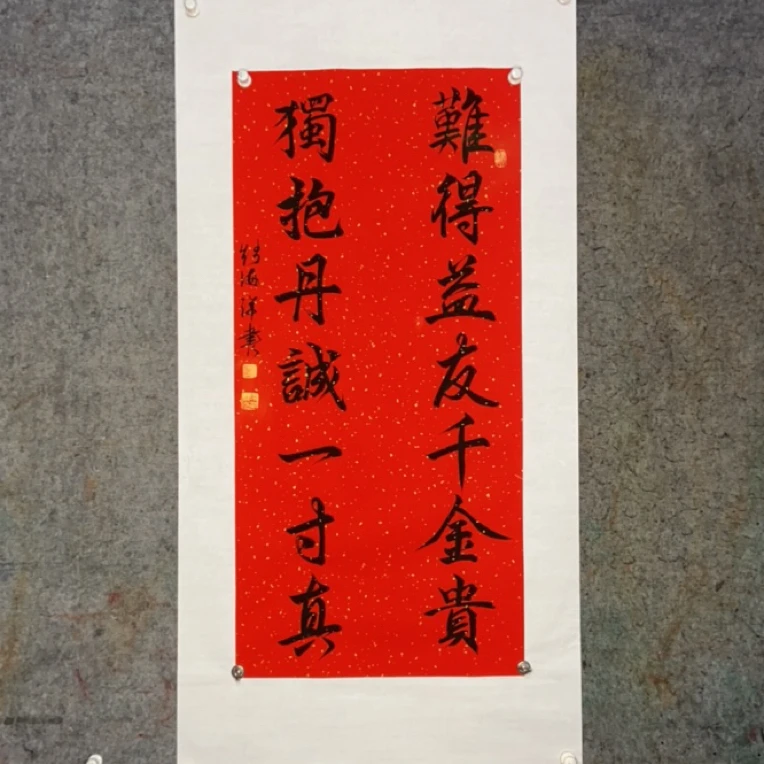 難得益友千金貴
獨抱丹誠一寸真